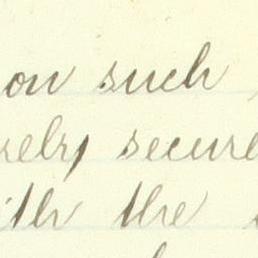 on such
secure
ith the